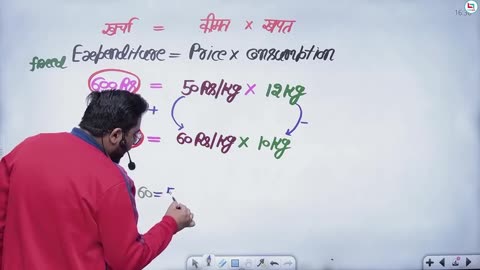 खर्चा = कीमत × खपत
fixed Expenditure = Price × Consumption
600 Rs = 50 Rs/Kg × 12 Kg
+ -
= 60 Rs/Kg × 10 Kg
60 = 5